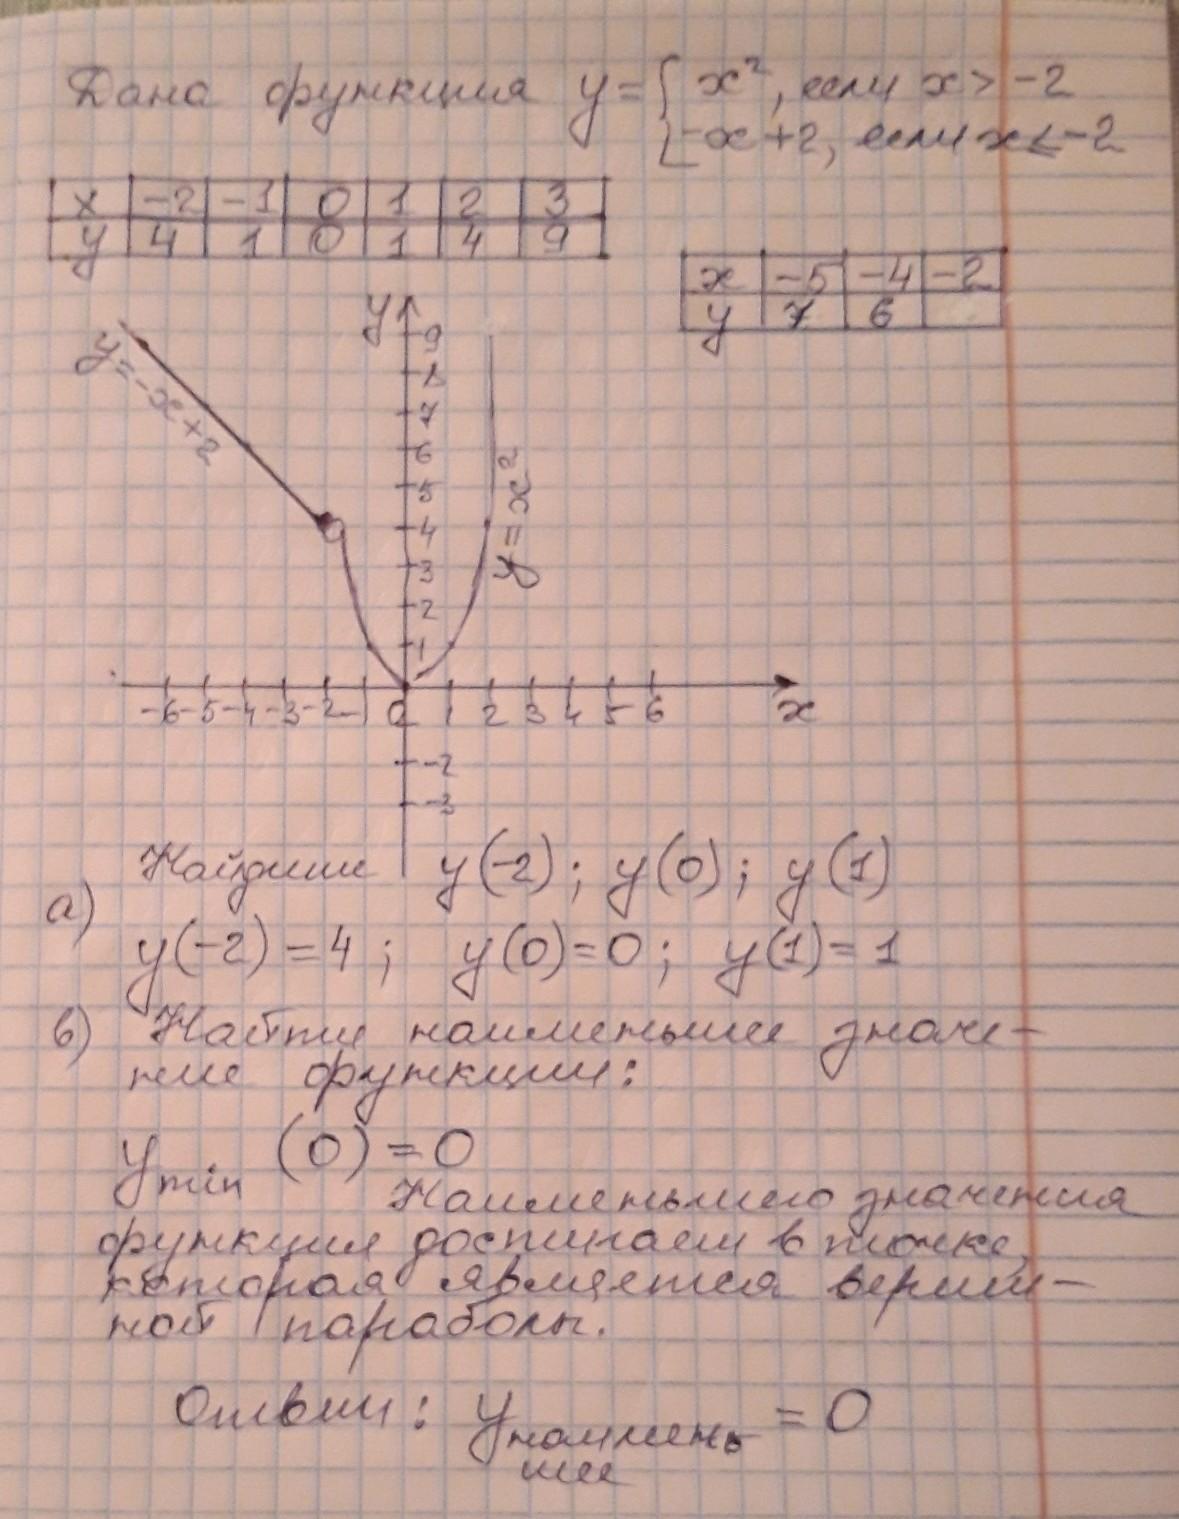 Дана функция y = { x², если x > -2
-x + 2, если x ≤ -2
x -2 -1 0 1 2 3
y 4 1 0 1 4 9
x -5 -4 -2
y 7 6
y
9
8
7
6
5
4
3
2
1
y = -x + 2
y = x²
-6 -5 -4 -3 -2 -1 0 1 2 3 4 5 6
x
-2
-3
Найдите y(-2); y(0); y(1)
а)
y(-2) = 4; y(0) = 0; y(1) = 1
в) Найти наименьшее значе-
ние функции:
y min (0) = 0
Наименьшего значения
функция достигает в точке,
которая является верши-
ной параболы.
Ответ: y наимень = 0
шее